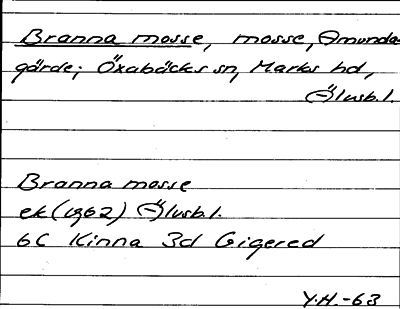 Branna mosse, mosse, Amunda-
gärde; Öxabäcks sn, Marks hd,
Älvsb.l.
Branna mosse
ek (1962) Älvsb.l.
6C Kinna 3d Gigered
Y.H.-63